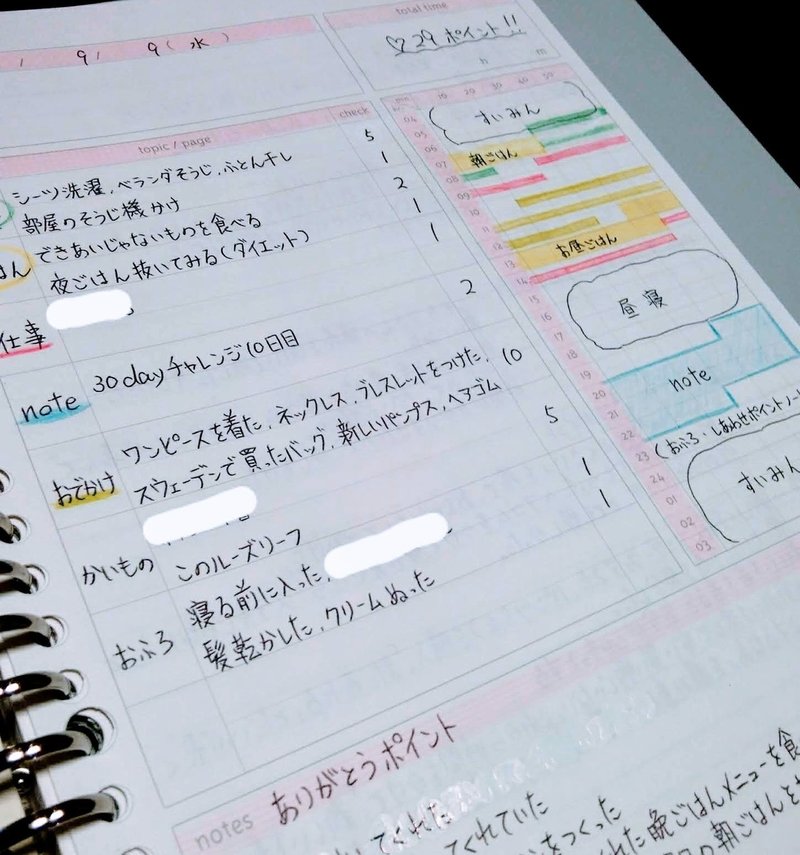 total time
/ 9/ 9(水)
♡29ポイント!!
h m
topic / page check
シーツ洗濯、ベランダそうじ、ふとん干し 5
部屋のそうじ機かけ 1
はん できあいじゃないものを食べる 2
夜ごはん抜いてみる(ダイエット) 1
仕事 1
note 30dayチャレンジ10日目 2
ワンピースを着た、ネックレス、ブレスレットをつけた、 10
おでかけ スウェーデンで買ったバッグ、新しいパンプス、ヘアゴム
5
かいもの このルーズリーフ
おふろ 寝る前に入った、 1
髪乾かした、クリームぬった 1
min 10 20 30 40 50
04
05
06
07
08
09
10
11
12
13
14
15
16
17
18
19
20
21
22
23
24
01
02
03
すいみん
朝ごはん
お昼ごはん
昼寝
note
(おふろ・しあわせポイントノー
すいみん
notes ありがとうポイント
てくれた
てくれていた
をつくった
くれた晩ごはんメニューを食
の朝ごはんと